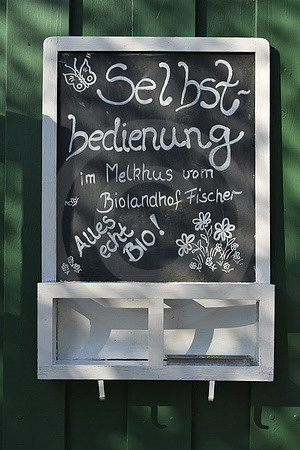 Selbst-
bedienung
im Melkhus vom
Biolandhof Fischer
Alles
echt
BIO!